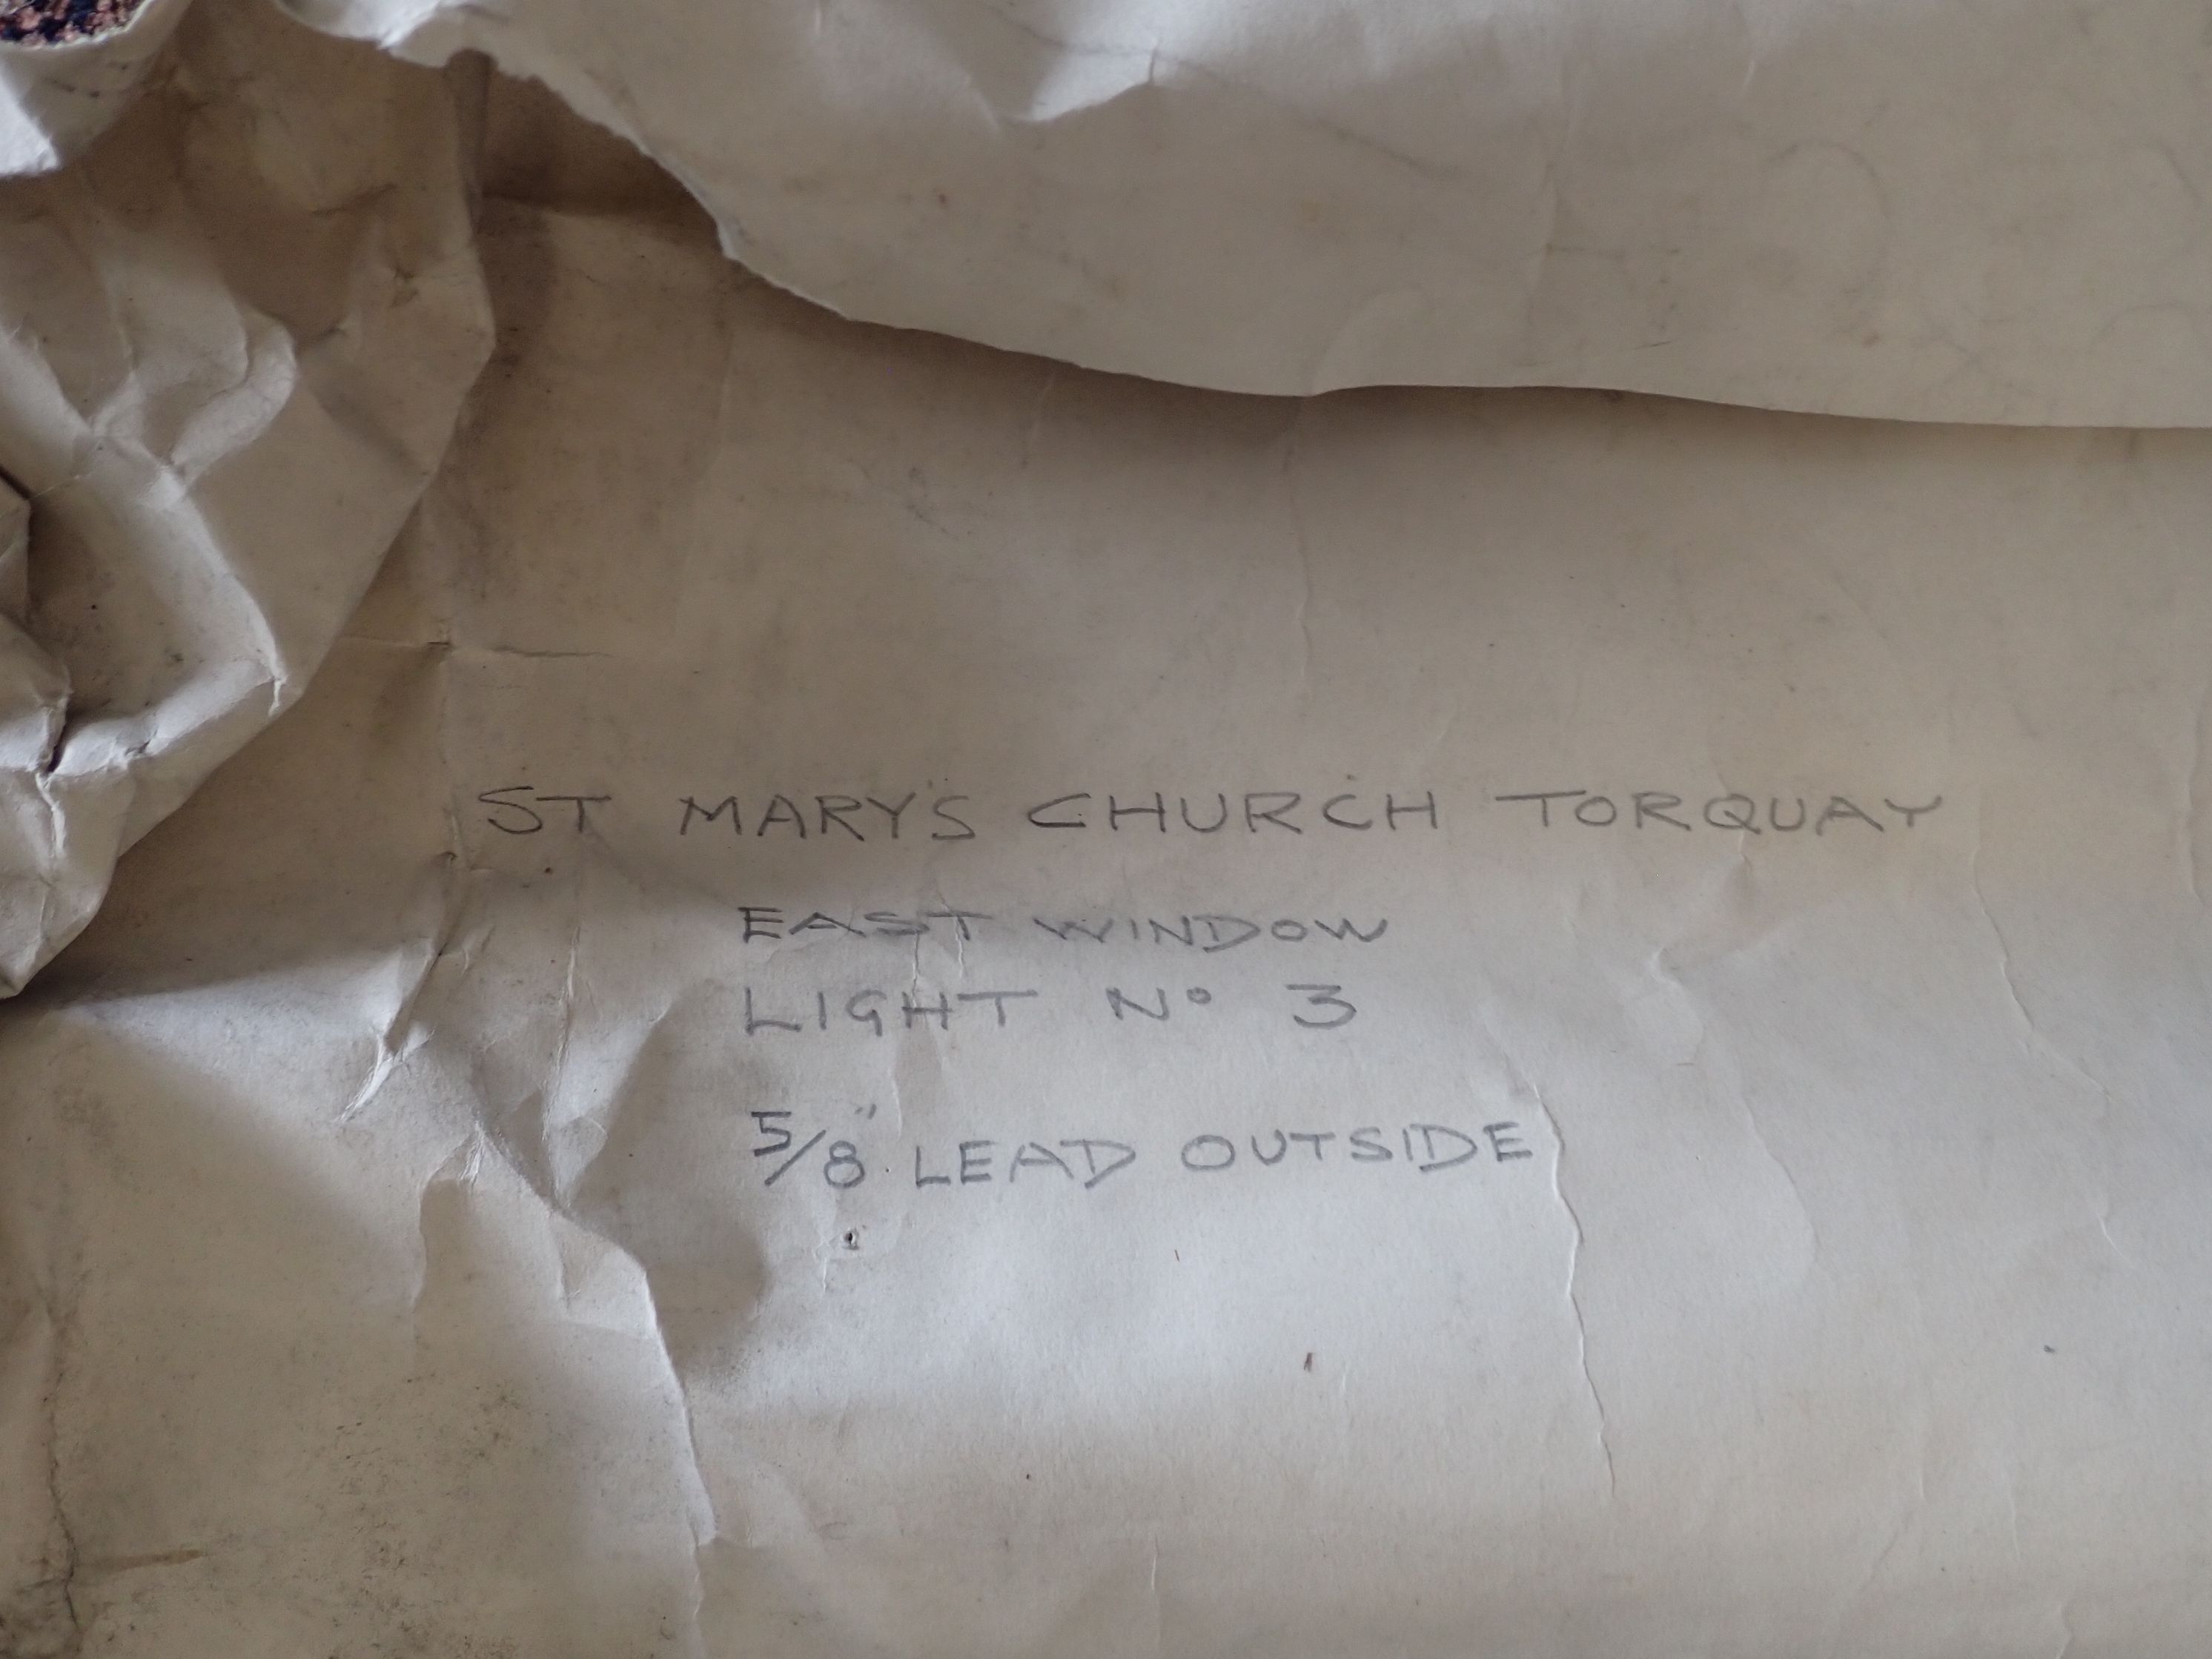 ST MARY'S CHURCH TORQUAY
EAST WINDOW
LIGHT Nº 3
5/8" LEAD OUTSIDE